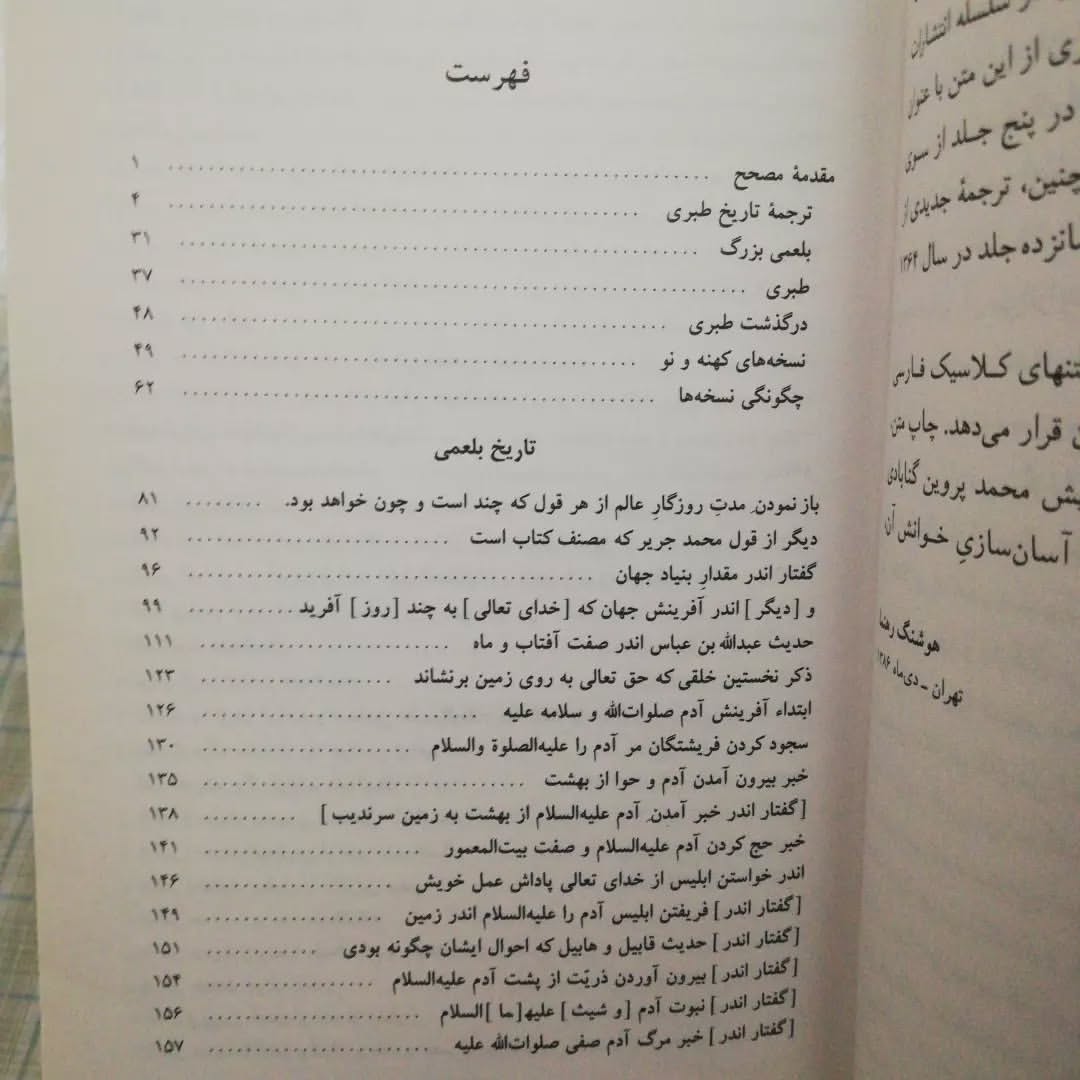 سلسله انتشارات
ری از این متن با عنوان
در پنج جـلـد از سـوی
چنین، ترجمهٔ جدیدی از
سانزده جلد در سال ۱۳۶۴
تنهای کـلاسیک فـارسی
قرار می‌دهد. چاپ متن،
یش محمد پروین گنابادی
آسان‌سازیِ خـوانش آن،
هوشنگ رهنما
تهران ـ دی‌ماه ۱۳۸۶
فهرست
مقدمهٔ مصحح ........ ۱
ترجمهٔ تاریخ طبری ........ ۴
بلعمی بزرگ ........ ۳۱
طبری ........ ۳۷
درگذشت طبری ........ ۴۸
نسخه‌های کهنه و نو ........ ۴۹
چگونگی نسخه‌ها ........ ۶۲
تاریخ بلعمی
باز نمودنِ مدتِ روزگارِ عالم از هر قول که چند است و چون خواهد بود. ........ ۸۱
دیگر از قول محمد جریر که مصنف کتاب است ........ ۹۲
گفتار اندر مقدارِ بنیاد جهان ........ ۹۶
و [دیگر] اندر آفرینش جهان که [خدای تعالی] به چند [روز] آفرید ........ ۹۹
حدیث عبدالله بن عباس اندر صفت آفتاب و ماه ........ ۱۱۱
ذکر نخستین خلقی که حق تعالی به روی زمین برنشاند ........ ۱۲۳
ابتداء آفرینش آدم صلوات‌الله و سلامه علیه ........ ۱۲۶
سجود کردن فریشتگان مر آدم را علیه‌الصلوة والسلام ........ ۱۳۰
خبر بیرون آمدن آدم و حوا از بهشت ........ ۱۳۵
[گفتار اندر خبر آمدنِ آدم علیه‌السلام از بهشت به زمین سرندیب] ........ ۱۳۸
خبر حج کردن آدم علیه‌السلام و صفت بیت‌المعمور ........ ۱۴۱
اندر خواستن ابلیس از خدای تعالی پاداش عمل خویش ........ ۱۴۶
[گفتار اندر] فریفتن ابلیس آدم را علیه‌السلام اندر زمین ........ ۱۴۹
[گفتار اندر] حدیث قابیل و هابیل که احوال ایشان چگونه بودی ........ ۱۵۱
[گفتار اندر] بیرون آوردن ذریّت از پشت آدم علیه‌السلام ........ ۱۵۴
[گفتار اندر] نبوت آدم [و شیث] علیهـ[ما] السلام ........ ۱۵۶
[گفتار اندر] خبر مرگ آدم صفی صلوات‌الله علیه ........ ۱۵۷